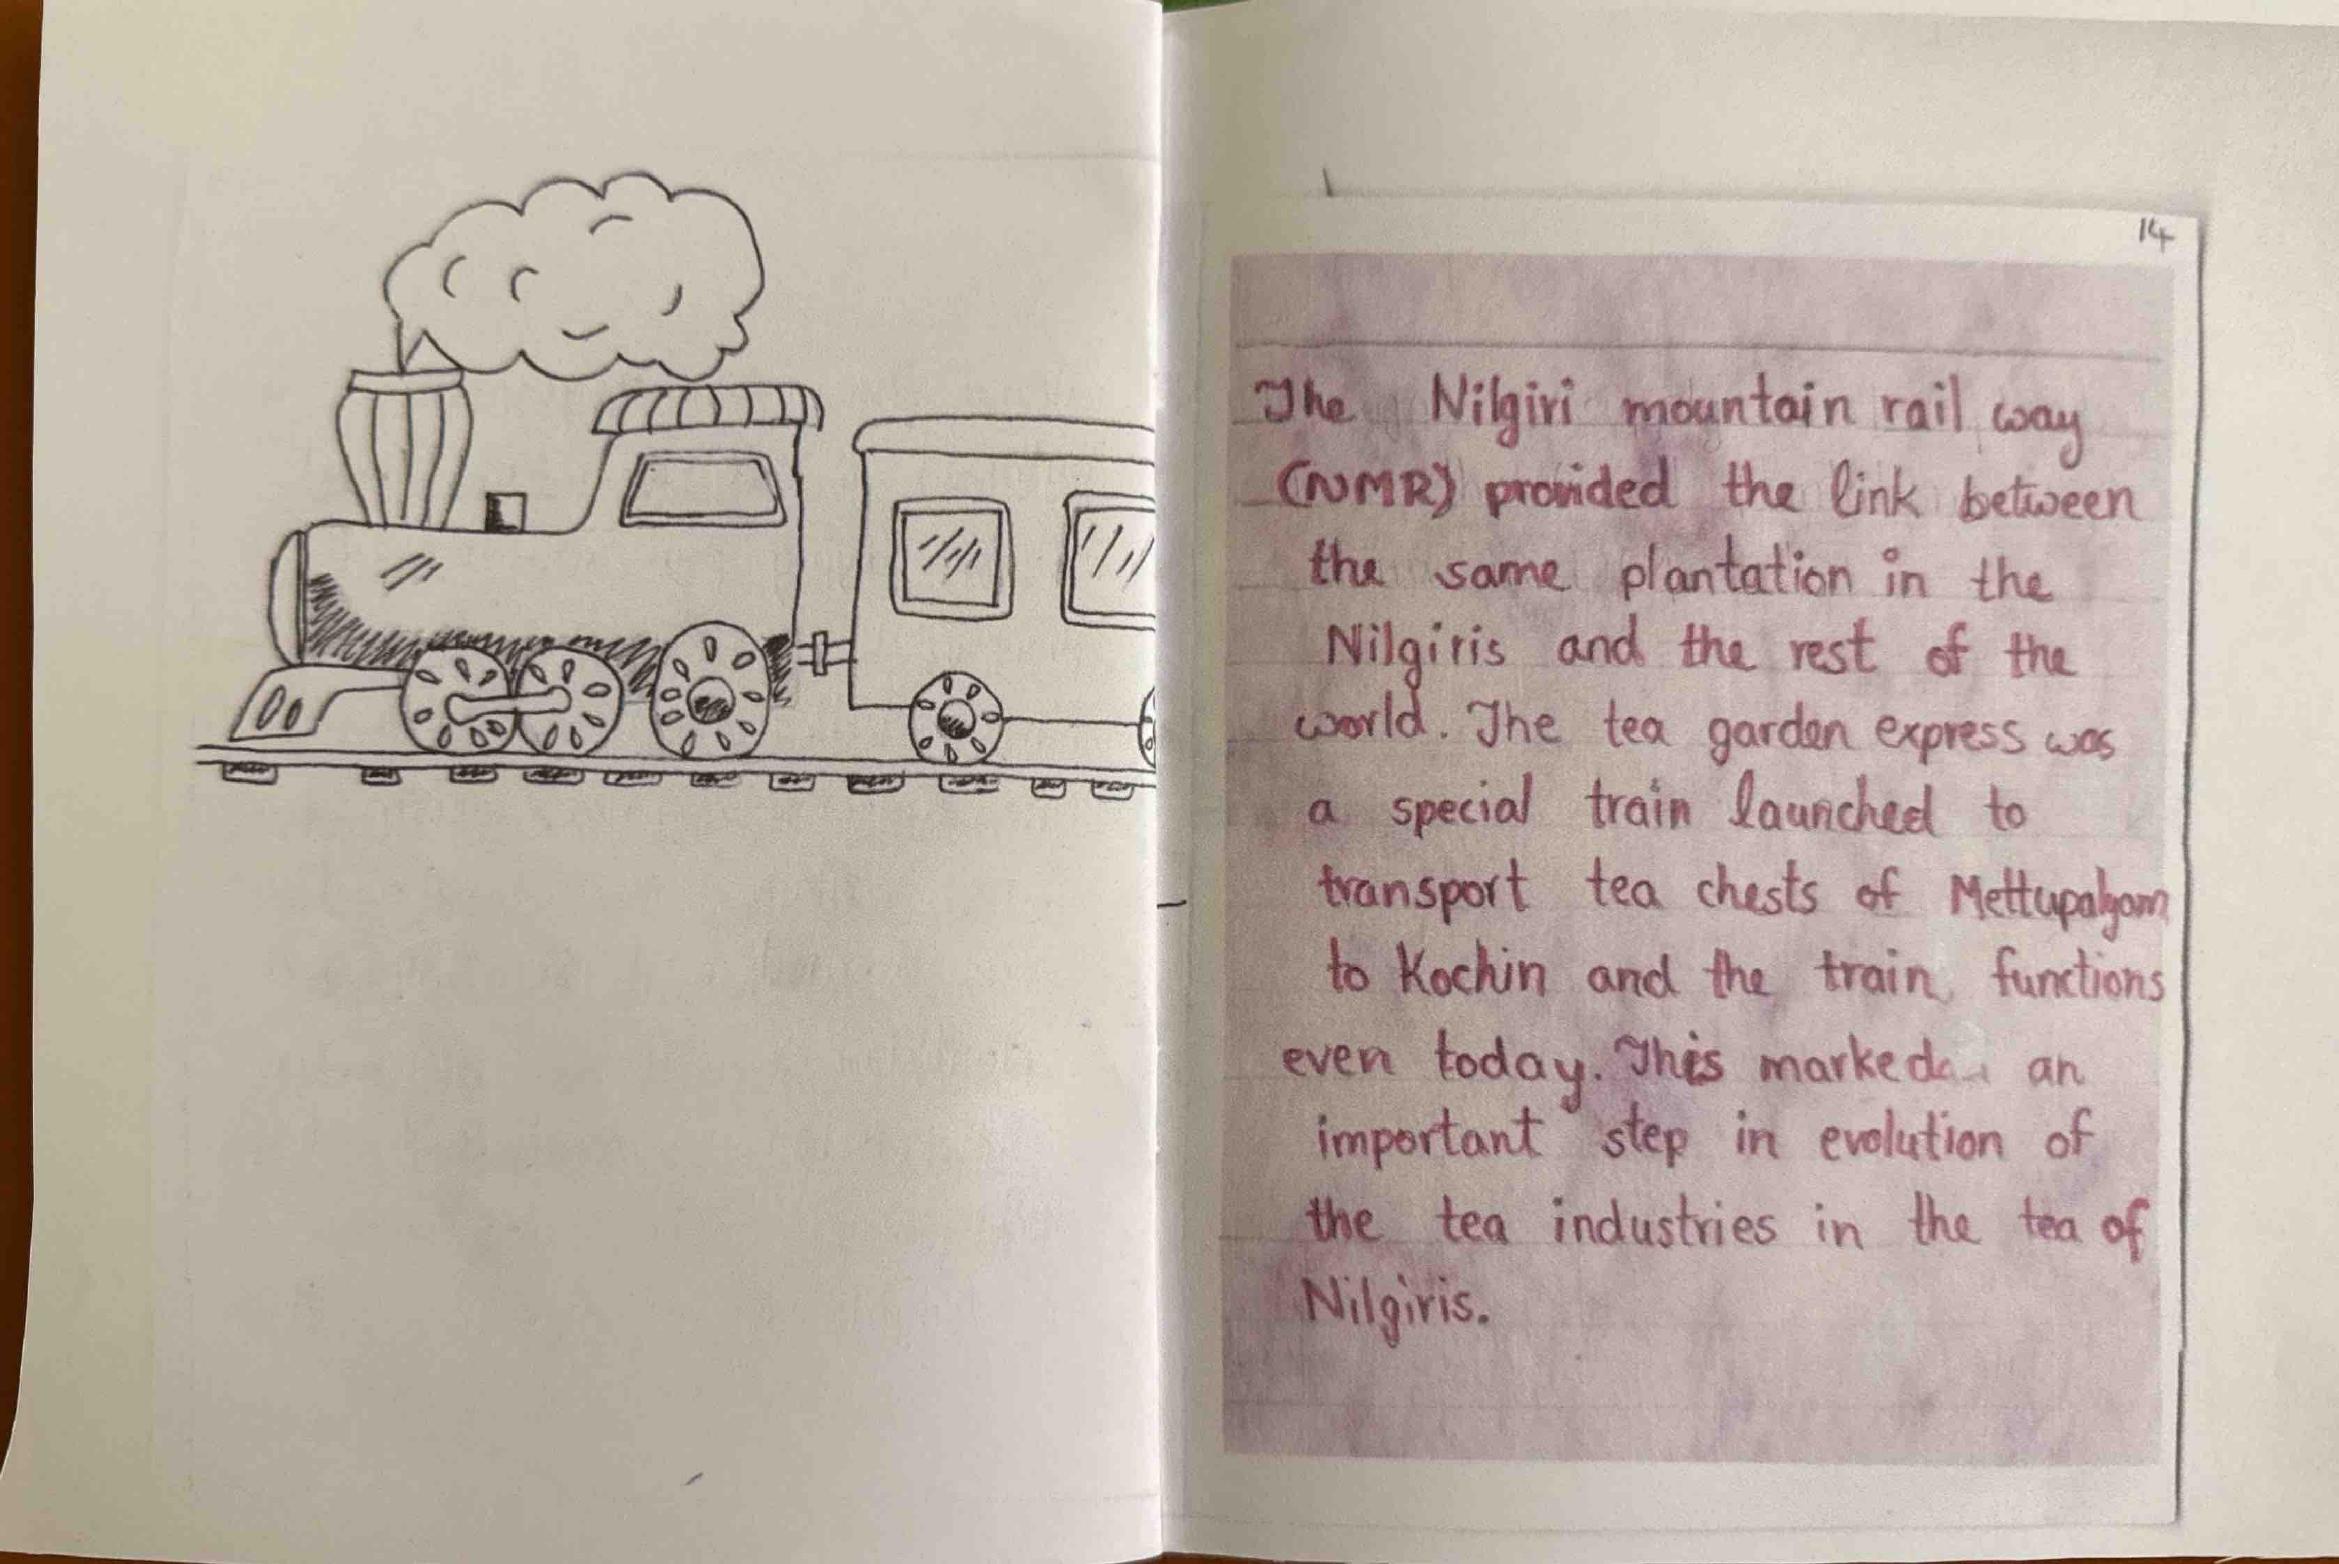 14
The Nilgiri mountain rail way
(NMR) provided the link between
the same plantation in the
Nilgiris and the rest of the
world. The tea garden express was
a special train launched to
transport tea chests of Mettupalyam
to Kochin and the train functions
even today. This marked an
important step in evolution of
the tea industries in the tea of
Nilgiris.